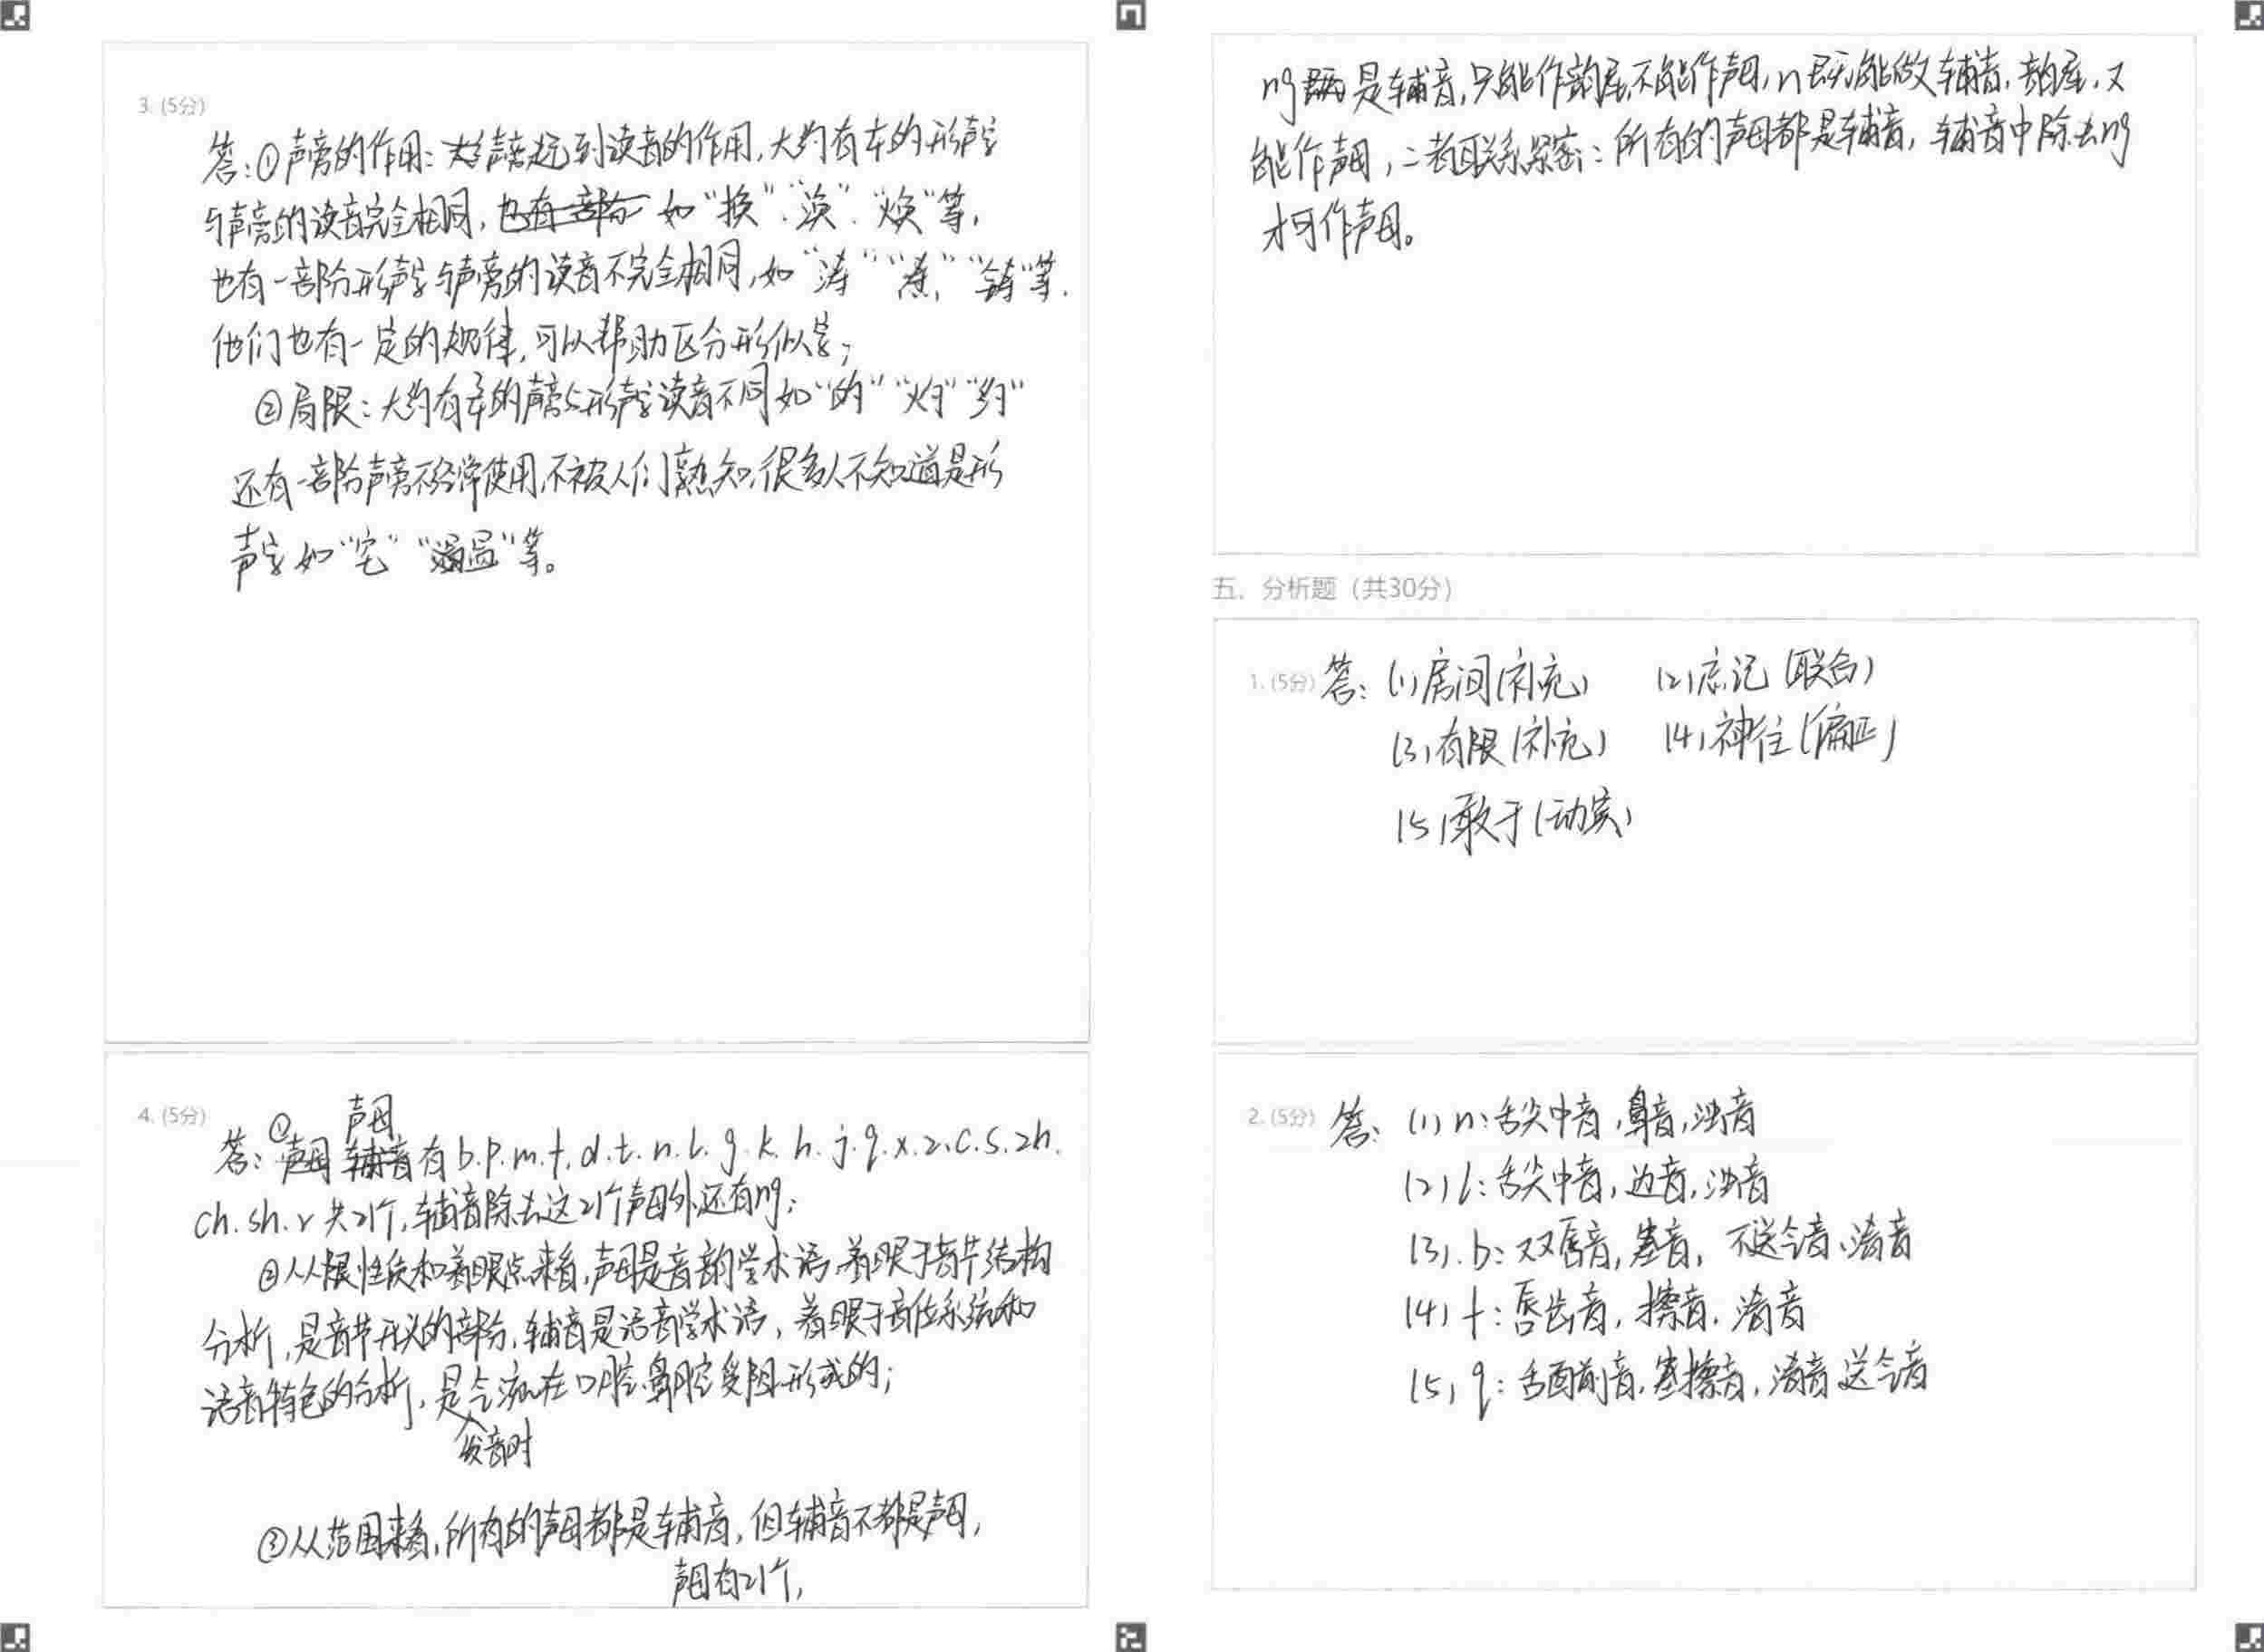 3. (5分)
答:①声旁的作用:声旁起到读音的作用,大约有 的形声字
与声旁的读音完全相同,也有一部分 如“换”“涣”“焕”等,
也有一部分形声字与声旁的读音不完全相同,如“涛”“焘”“铸”等.
他们也有一定的规律,可以帮助区分形似字;
②局限:大约有 的声旁与形声字读音不同如“的”“灼”“约”
还有一部分声旁不经常使用,不被人们熟知,很多人不知道是形
声字如“宅”“温”等。
4. (5分)
① 声母
答:声母 辅音有b.p.m.f.d.t.n.l.g.k.h.j.q.x.z.c.s.zh.
ch.sh.r共21个,辅音除去这21个声母外还有ng;
②从性质和着眼点来看,声母是音韵学术语,着眼于音节结构
分析,是音节开头的部分,辅音是语音学术语,着眼于音位系统和
语音特色的分析,是气流在口腔、鼻腔受阻形成的;
发音时
③从范围来看,所有的声母都是辅音,但辅音不都是声母,
声母有21个,
ng 是辅音,只能作韵尾,不能作声母,n既能做辅音,韵尾,又
能作声母,二者联系紧密:所有的声母都是辅音,辅音中除去ng
才可作声母。
五、分析题(共30分)
1. (5分) 答:(1)房间(补充) (2)忘记(联合)
(3)有限(补充) (4)神往(偏正)
(5)敢于(动宾)
2. (5分) 答: (1)n:舌尖中音,鼻音,浊音
(2)l:舌尖中音,边音,浊音
(3).b:双唇音,塞音,不送气音、清音
(4)f:唇齿音,擦音,清音
(5)q:舌面前音,塞擦音,清音 送气音